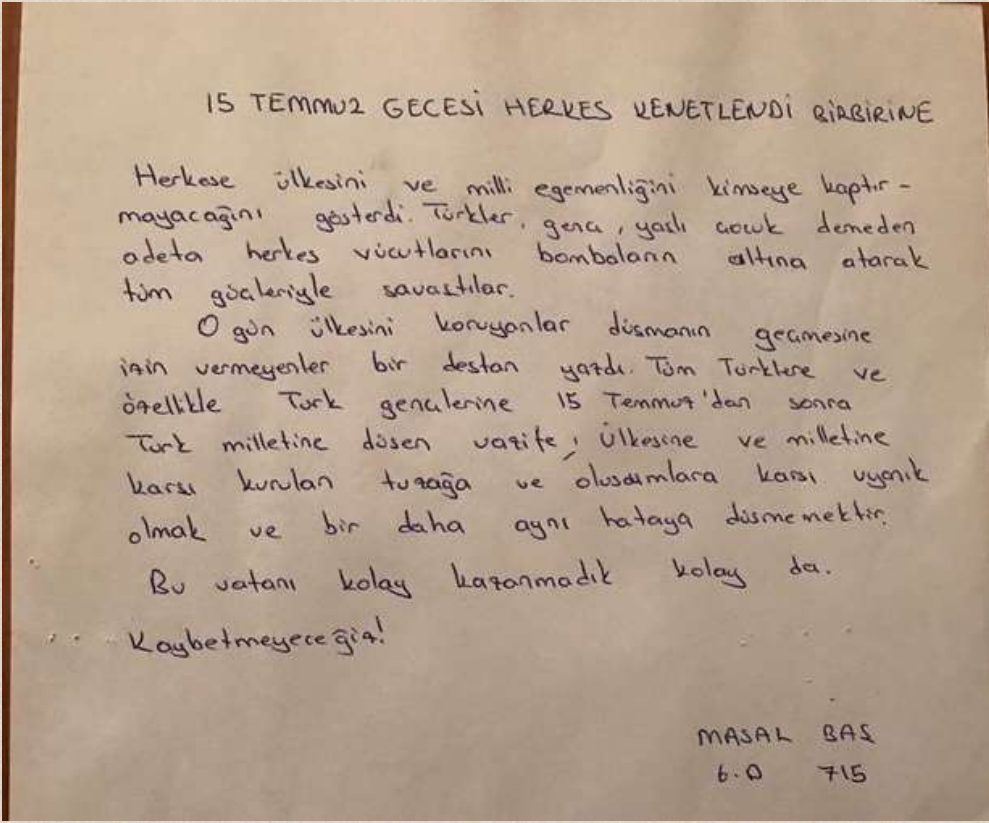 15 TEMMUZ GECESİ HERKES KENETLENDİ BİRBİRİNE
Herkese ülkesini ve milli egemenliğini kimseye kaptır-
mayacağını gösterdi. Türkler, genç, yaşlı çocuk demeden
adeta herkes vücutlarını bombaların altına atarak
tüm güçleriyle savaştılar.
O gün ülkesini koruyanlar düşmanın geçmesine
izin vermeyenler bir destan yazdı. Tüm Türklere ve
özellikle Türk gençlerine 15 Temmuz'dan sonra
Türk milletine düşen vazife, ülkesine ve milletine
karşı kurulan tuzağa ve oluşumlara karşı uyanık
olmak ve bir daha aynı hataya düşmemektir.
Bu vatanı kolay kazanmadık kolay da.
Kaybetmeyeceğiz!
MASAL BAŞ
6.D 715